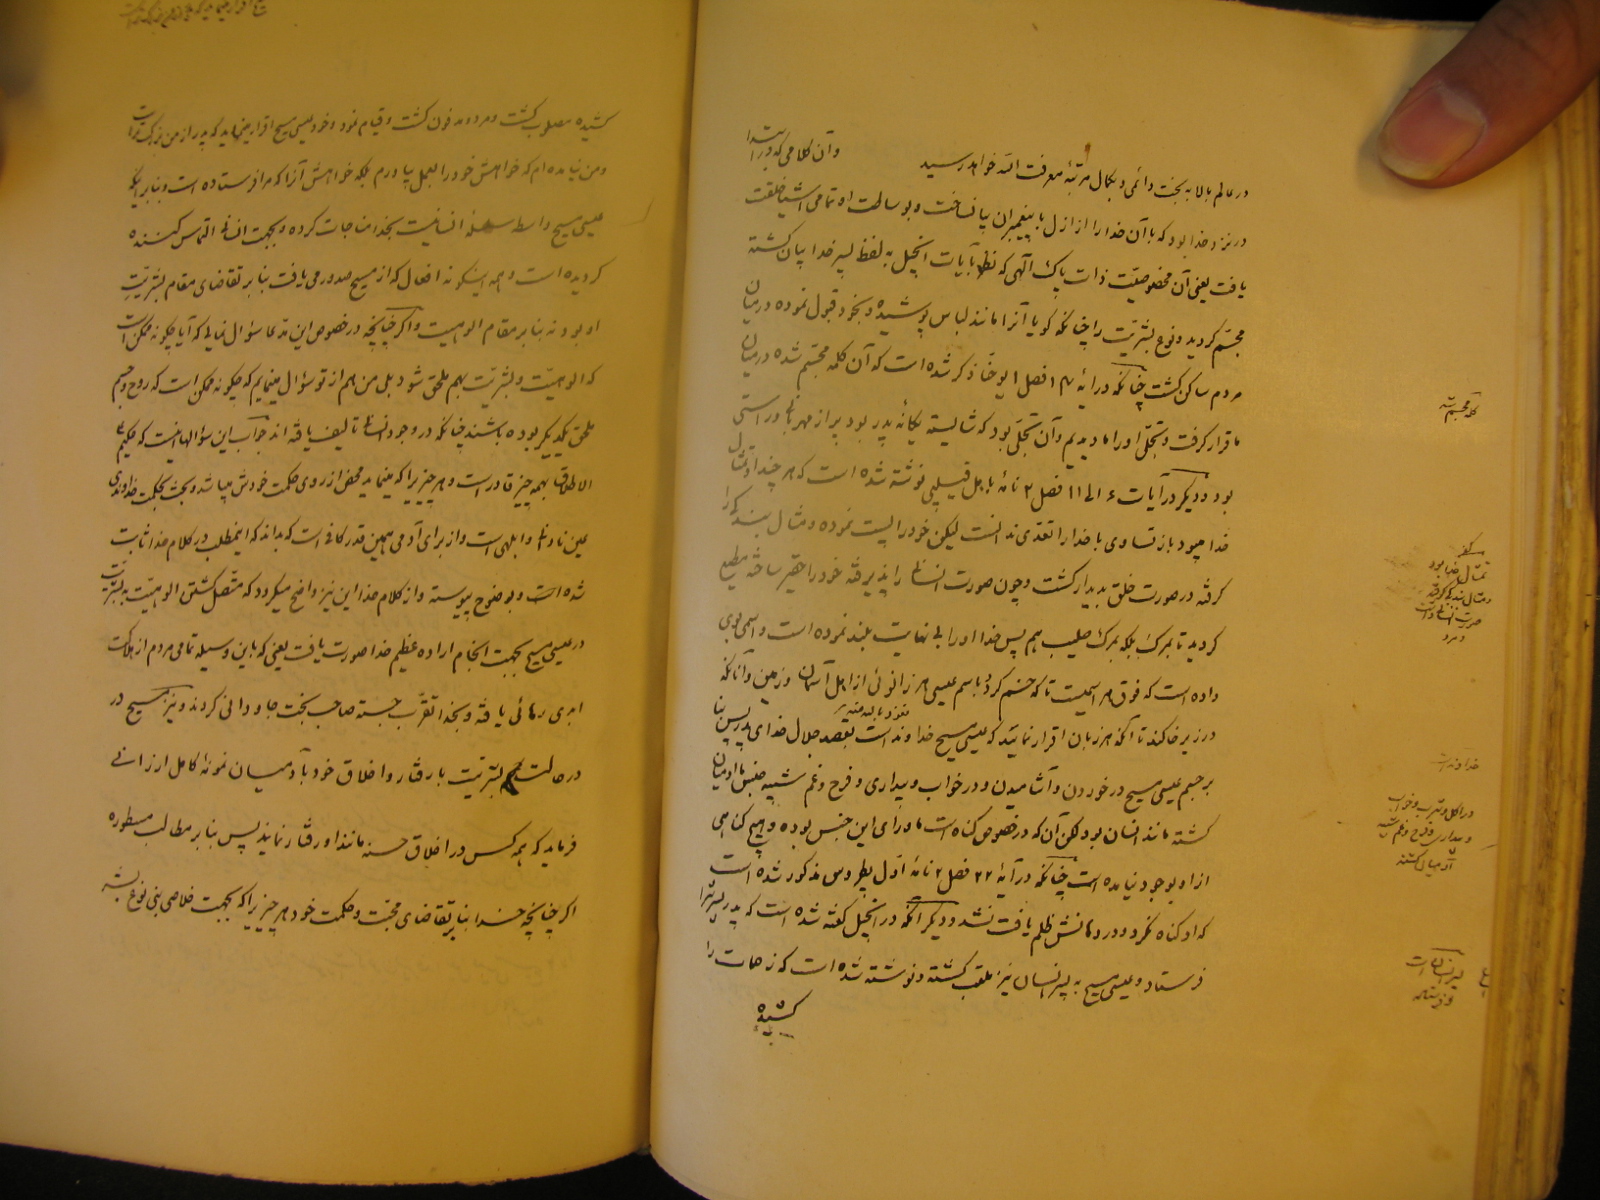 در عالم بالا به بخت دائمی و بکمال مرتبهٔ معرفت الله خواهد رسید وآن کلامی که در ابتدا
در نزد خدا بود که با آن خدا را از ازل با پیغمبران بیانساخت و بوساطت او تمامی اشیا خلقت
یافت یعنی آن مخصوصیّت ذات پاک الٓهی که نظر بآیات انجیل به لفظ پسر خدا بیان گشته
مجسّم گردید و نوع بشریّت را چنانکه گویا آنرا مانند لباس پوشیده و بخود قبول نموده در میان
مردم ساکن گشت چنانکه در آیهٔ ۱۴ فصل ۱ یوحنّا ذکر شده است که آن کلمه مجسّم شده در میان
ما قرار گرفت و تجلّی او را ما دیدیم و آن تجلّی بود که شایستهٔ یگانهٔ پدر بود پر از مهربانی و راستی
بود و دیگر در آیات ۶ الی ۱۱ فصل ۲ نامهٔ باهل فیلیپی نوشته شده است که هر چند او تمثال
خدا میبود باز تساوی با خدا را تعدّی ندانست لیکن خود را پست نموده و مثال بندگی را
گرفته در صورت خلق پدیدار گشت و چون صورت انسانی را پذیرفته خود را حقیر ساخته مطیع
گردید تا بمرگ بلکه بمرگ صلیب هم پس خدا او را بی نهایت بلند نموده است و اسمی بوی
داده است که فوق هر اسمیست تا که خم گردد باسم عیسی هر زانوئی از اهل آسمان و زمین و آنانکه
در زیر خاکند تا آنکه هر زبان اقرار نماید که عیسی مسیح خداوند است بقصد جلال خدای پدر پس بنا
بر جسم عیسی مسیح در خوردن و آشامیدن و در خواب و بیداری و فرح و غم شبیه جنس ما آدمیان
گشته مانند انسان بود لکن آن که در خصوص گناه است ماورای این جنس بوده و هیچ گناهی
از او بوجود نیامده است چنانکه در آیهٔ ۲۲ فصل ۲ نامهٔ اوّل پطروس مذکور شده است
که او گناه نکرد و در دهانش ظلم یافت نشد و دیگر آنکه در انجیل گفته شده است که پدر پسر را
فرستاد و عیسی مسیح به پسر انسان نیز ملقب گشته و نوشته شده است که زحمات را
کشیده
کلمه مجسم شد
تمثال خدا بود
و مثال بندگی گرفته
و مرد
خداوند است
در اکل و شرب و خواب
و بیداری و فرح و غم شبیه
آدمیان گشته
کشیده مصلوب گشت و مرد و مدفون گشت و قیام نمود و خود عیسی مسیح اقرار مینماید که پدر از من بزرگتر است
ومن نیامده‌ام که خواهش خود را بعمل بیاورم بلکه خواهش آنرا که مرا فرستاده است و بنابر اینکه
عیسی مسیح واسطه انسانیت بخدا مناجات کرده و بجهت انسانی التماس کننده
گردیده است و همه اینگونه افعال که از مسیح صدور می یافت بنابر تقاضای مقام بشریّت
او بود نه بنابر مقام الوهیت و اگر چنانچه در خصوص این مدعا سؤال نمائی که آیا چگونه ممکن است
که الوهیّت و بشریّت بهم ملحق شود بلی من هم از تو سؤال مینمایم که چگونه ممکن است که روح و جسم
ملحق یکدیگر بوده باشند چنانکه در وجود انسانی تألیف یافته‌اند جواب این سؤالها اینست که حکیم علی
الاطلاق بهمه چیز قادر است و هر چیزیرا که مینماید محض از روی حکمت خودش میباشد و بحث بحکمت خداوندی
عین نادانی و ابلهی است و از برای آدمی همین قدر کافی است که بداند که اینمطلب در کلام خدا ثابت
شده است و بوضوح پیوسته و از کلام خدا این نیز واضح میگردد که متّصل گشتن الوهیّت به بشریّت
در عیسی مسیح بجهت انجام اراده عظیم خدا صورت یافت یعنی که باین وسیله تمامی مردم از هلاکت
ابدی رهائی یافته و بخدا تقرّب جسته صاحب بخت جاودانی گردند و نیز مسیح در
در حالت بشریّت با رفتار و اخلاق خود بآدمیان نمونهٔ کامل ارزانی
فرماید که همه کس در اخلاق حسنه مانند او رفتار نماید پس بنابر مطالب مسطوره
اگر چنانچه خدا بنا بر تقاضای محبّت و حکمت خود هر چیزیرا که بجهت خلاصی بنی نوع بشر